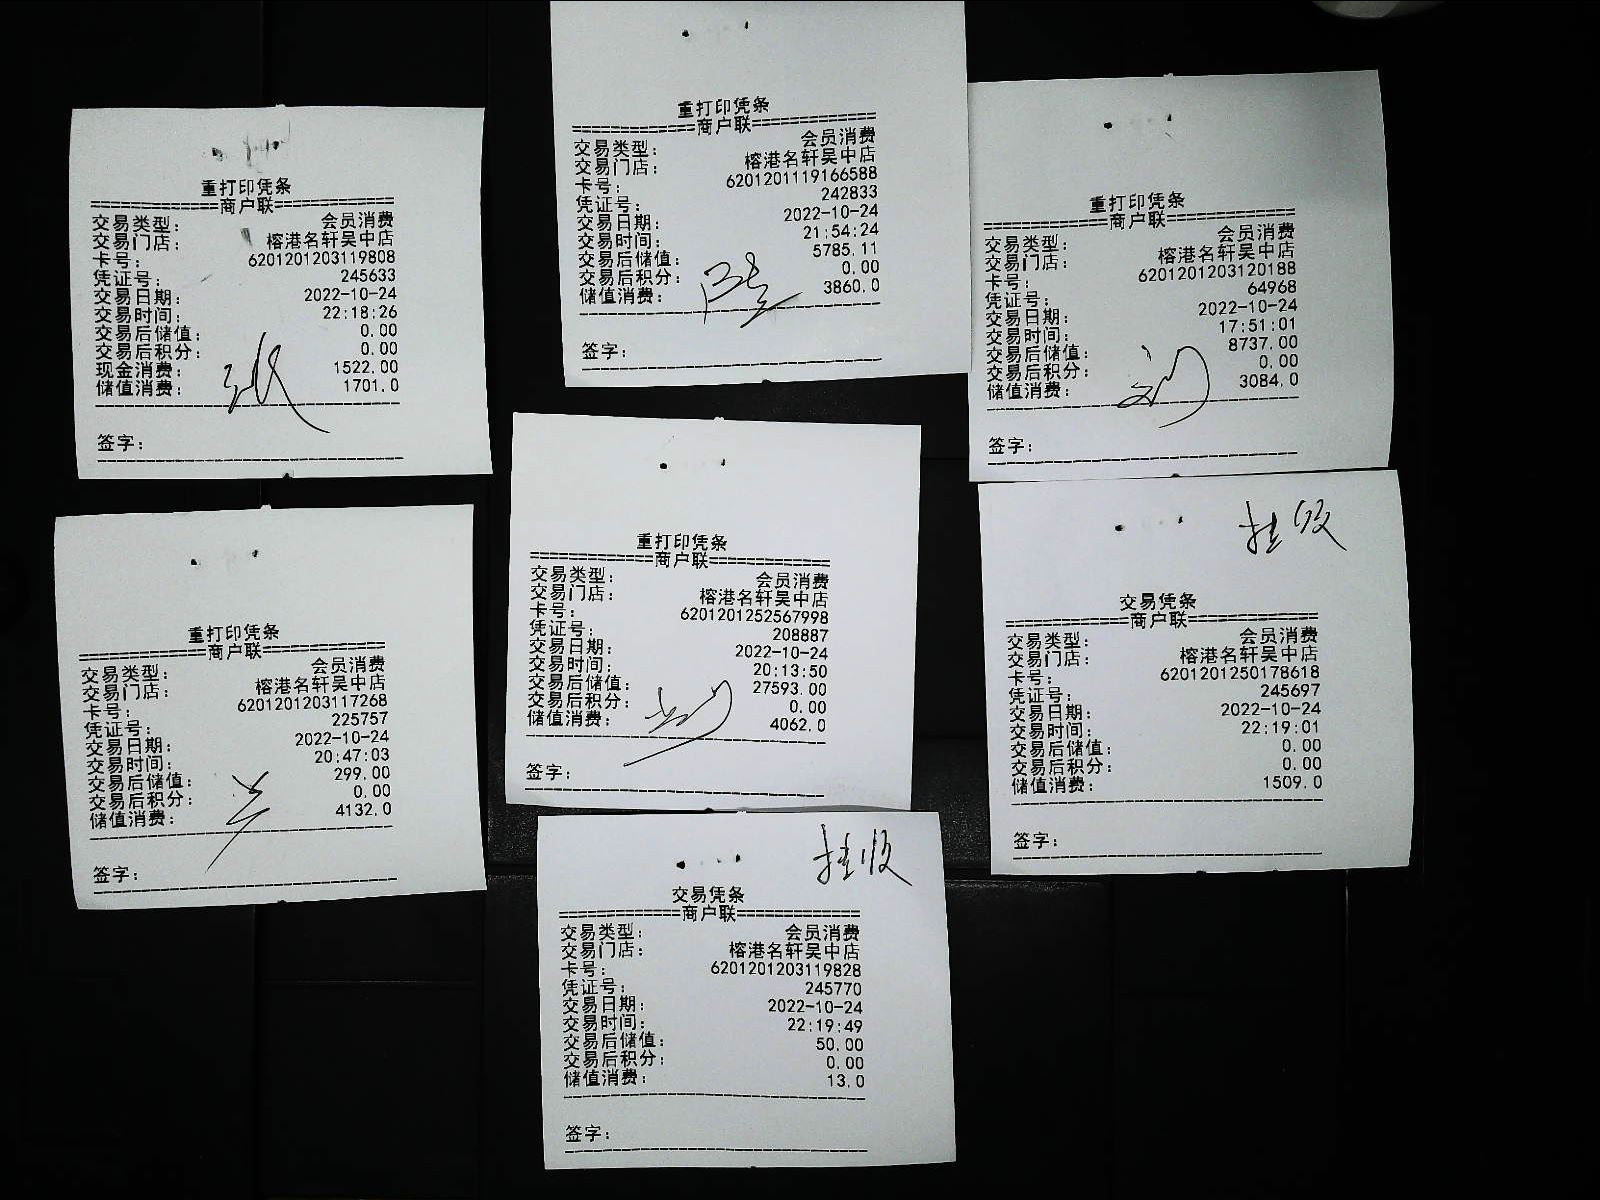 重打印凭条
=============商户联=============
交易类型： 会员消费
交易门店： 榕港名轩吴中店
卡号： 6201201203119808
凭证号： 245633
交易日期： 2022-10-24
交易时间： 22:18:26
交易后储值： 0.00
交易后积分： 0.00
现金消费： 1522.00
储值消费： 1701.0
签字：
重打印凭条
=============商户联=============
交易类型： 会员消费
交易门店： 榕港名轩吴中店
卡号： 6201201119166588
凭证号： 242833
交易日期： 2022-10-24
交易时间： 21:54:24
交易后储值： 5785.11
交易后积分： 0.00
储值消费： 3860.0
签字：
重打印凭条
=============商户联=============
交易类型： 会员消费
交易门店： 榕港名轩吴中店
卡号： 6201201203120188
凭证号： 64968
交易日期： 2022-10-24
交易时间： 17:51:01
交易后储值： 8737.00
交易后积分： 0.00
储值消费： 3084.0
签字：
重打印凭条
=============商户联=============
交易类型： 会员消费
交易门店： 榕港名轩吴中店
卡号： 6201201203117268
凭证号： 225757
交易日期： 2022-10-24
交易时间： 20:47:03
交易后储值： 299.00
交易后积分： 0.00
储值消费： 4132.0
签字：
重打印凭条
=============商户联=============
交易类型： 会员消费
交易门店： 榕港名轩吴中店
卡号： 6201201252567998
凭证号： 208887
交易日期： 2022-10-24
交易时间： 20:13:50
交易后储值： 27593.00
交易后积分： 0.00
储值消费： 4062.0
签字：
挂收
交易凭条
=============商户联=============
交易类型： 会员消费
交易门店： 榕港名轩吴中店
卡号： 6201201250178618
凭证号： 245697
交易日期： 2022-10-24
交易时间： 22:19:01
交易后储值： 0.00
交易后积分： 0.00
储值消费： 1509.0
签字：
挂收
交易凭条
=============商户联=============
交易类型： 会员消费
交易门店： 榕港名轩吴中店
卡号： 6201201203119828
凭证号： 245770
交易日期： 2022-10-24
交易时间： 22:19:49
交易后储值： 50.00
交易后积分： 0.00
储值消费： 13.0
签字：